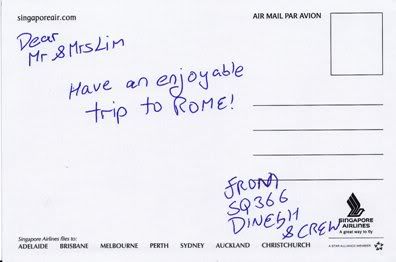 singaporeair.com
AIR MAIL PAR AVION
Dear
Mr & Mrs Lim
Have an enjoyable
trip to ROME!
FROM
SQ366
DINESH
& CREW
SINGAPORE
AIRLINES
A great way to fly
Singapore Airlines flies to:
ADELAIDE BRISBANE MELBOURNE PERTH SYDNEY AUCKLAND CHRISTCHURCH
A STAR ALLIANCE MEMBER